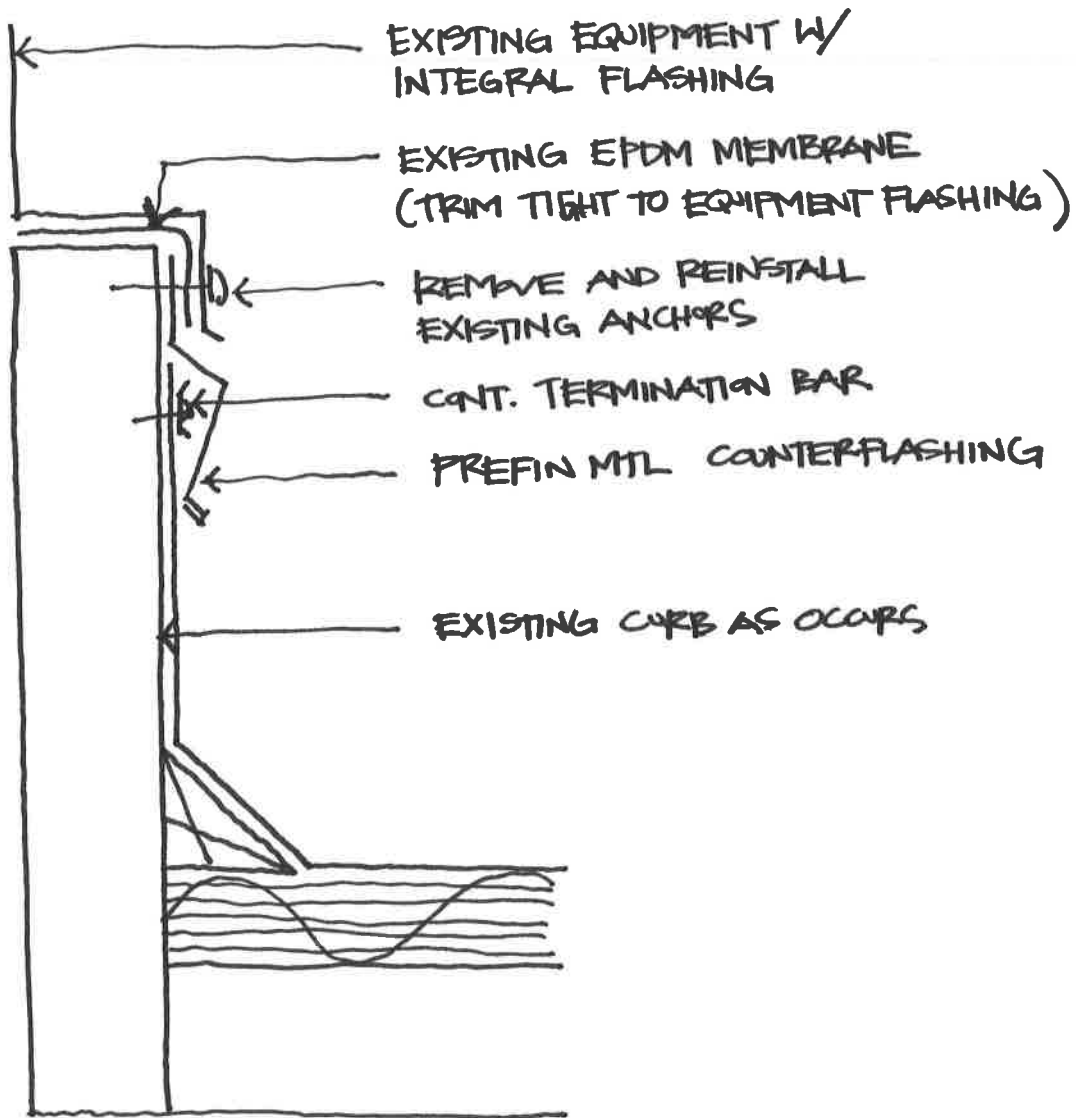 EXISTING EQUIPMENT W/
INTEGRAL FLASHING
EXISTING EPDM MEMBRANE
(TRIM TIGHT TO EQUIPMENT FLASHING)
REMOVE AND REINSTALL
EXISTING ANCHORS
CONT. TERMINATION BAR
PREFIN MTL COUNTERFLASHING
EXISTING CURB AS OCCURS